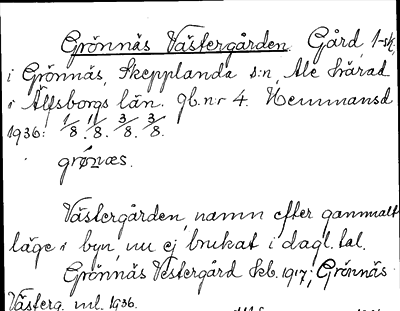 Grönnäs Västergården. Gård, 1-sk.
i Grönnäs, Skepplanda s:n, Ale härad
i Älfsborgs län. gb.nr 4. Hemmansd
1936: 1/8. 1/8. 3/8. 3/8.
grönæs.
Västergården, namn efter gammalt
läge i byn, nu ej brukat i dagl. tal.
Grönnäs Vestergård kb. 1917; Grönnäs
Västerg. ml. 1936.